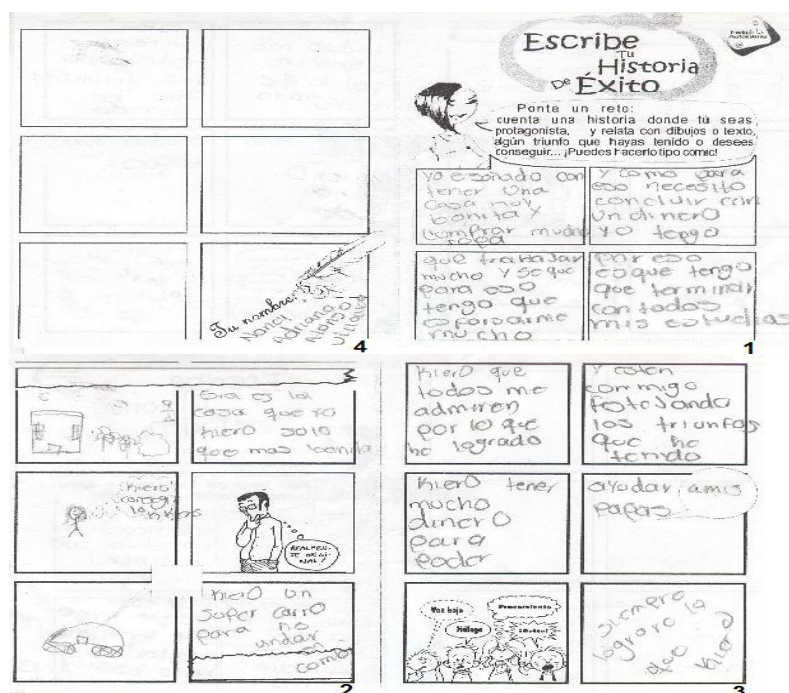 Escribe
Tu
Historia
De Éxito
Ponte un reto:
cuenta una historia donde tú seas
protagonista, y relata con dibujos o texto,
algún triunfo que hayas tenido o desees
conseguir... ¡Puedes hacerlo tipo comic!
yo e soñado con
tener una
casa muy
bonita y
comprar mucha
ropa
y como para
eso necesito
concluir con
un dinero
yo tengo
que trabajar
mucho y se que
para eso
tengo que
esforsarme
mucho
por eso
es que tengo
que terminar
con todos
mis estudias
1
Esa es la
casa que yo
kiero solo
que mas bonita
kiero
REALMEN-
TE ORIGI-
NAL!
kiero un
super carro
para no
andar
en
combi
2
kiero que
todos me
admiren
por lo que
he logrado
y esten
conmigo
festejando
los triunfos
que he
tenido
kiero tener
mucho
dinero
para
poder
ayudar a mis
papas
Voz baja
Pensamiento
Diálogo
siempre
lograre lo
que kiero
3
Tu nombre:
Nanci
Adriana
Alonso
Villalva
4